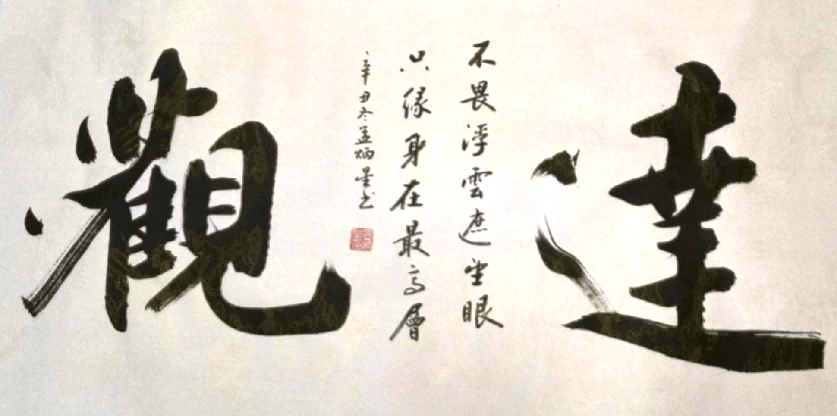 達
不畏浮雲遮望眼
只緣身在最高層
辛丑冬孟炳书
觀